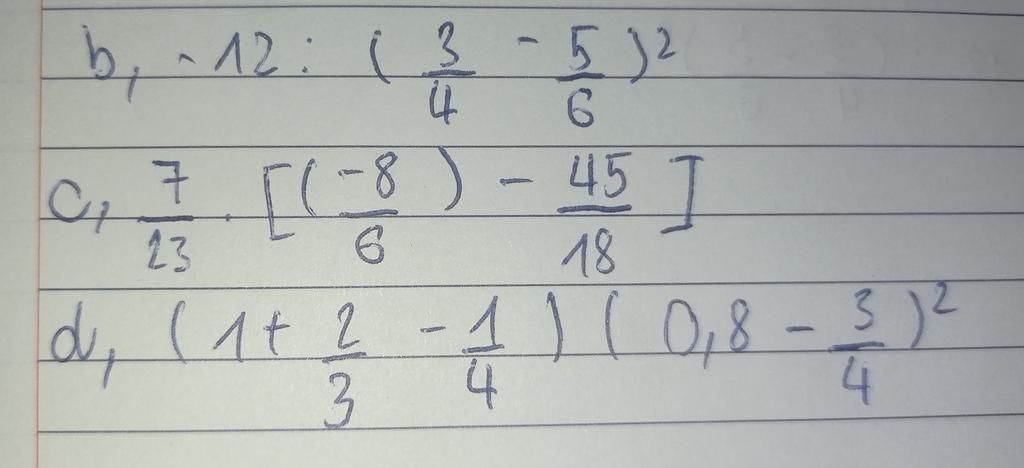 b, -12 : ( 3/4 - 5/6 )²
c, 7/23 . [ ( -8/6 ) - 45/18 ]
d, ( 1 + 2/3 - 1/4 ) ( 0,8 - 3/4 )²